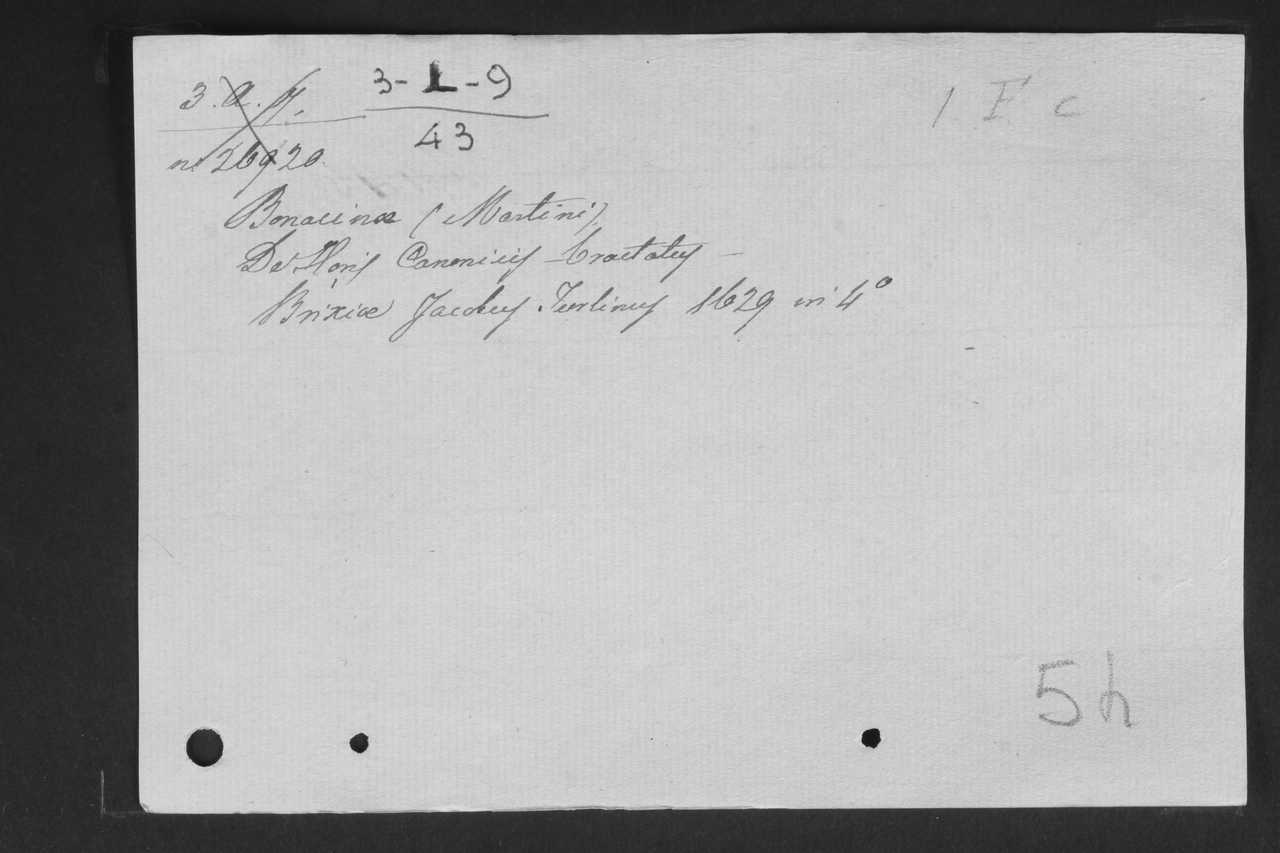 3. a. 4. 3-L-9
n. 26920. 43
1 F c
Bonacinæ (Martini)
De Horis Canonicis tractatus —
Brixiæ Jacobus Turlinus 1629 in 4º
5h